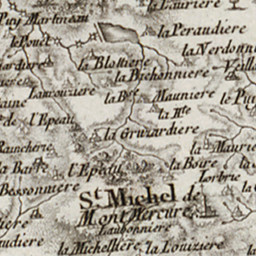 la Laurière
Puy Martineau
la Peraudiere
le Pouet
la Verdonni
la Blottiere
la Bichonniere
Lamrouziere
la Bse
Mauniere
le Puy
la Hte
l'Epeau
la Gruzardiere
la Maurie
Raincherie
la Barre
l'Epeau
la Boire
Bessonniere
St Michel de
Mont Mercure
Laubonniere
audiere
la Michelliere
la Louiziere